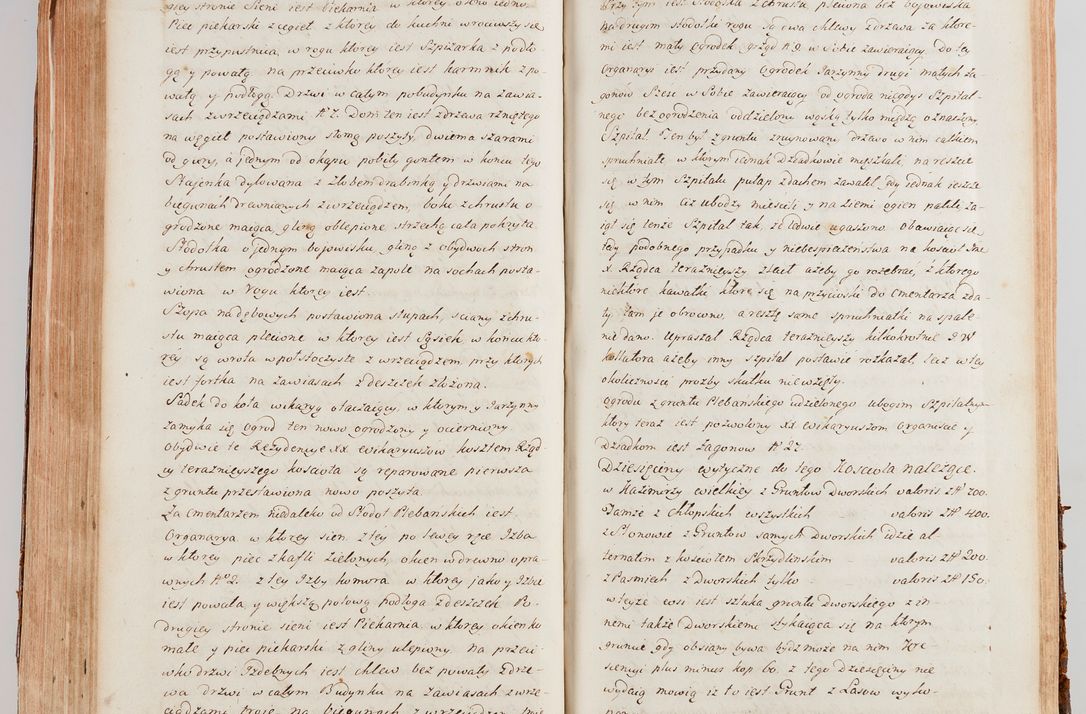 giey stronie Sieni iest Piekarnia w ktorey okno iedno.
Piec piekarski z cegieł z ktorey do kuchni wrociwszy się
iest przypustnica, w rogu ktorey iest Szpiżarka z podło
gą y powałą na przeciwko ktorey iest karmnik z po
wałą y podłogą. Drzwi w całym pobudynku na zawia-
sach z wrzeciądzami Nº 7. Dom ten iest z drzewa rżniętego
na węgieł postawiony słomą poszyty, dwiema szarami
od gury, a jednym od okapu pobity gontem w końcu tego
Stajenka dylowana z żłobem drabinką y drzwiami na
biegunach drewnianych z wrzeciądzem, boki z chrustu o
grodzone maiąca gliną oblepione strzechą cała pokryta.
Stodołka o jednym bojowisku, gliną z obydwoch stron
y chrustem ogrodzone maiąca zapole na sochach posta-
wiona w Rogu ktorey iest.
Szopa na dębowych postawiona słupach, sciany z chru-
stu maiąca plecione w ktorey iest Sąsiek w koncu kto-
rey są wrota w pół stoczyste z wrzeciądzem przy ktorych
iest fortka na zawiasach z deszczek złożona.
Sadek do koła wikaryą otaczaiący, w ktorym y Jarzynny
zamyka się ogrod ten nowo ogrodzony y ocierniony
Obydwie te Rezydencye XX Wikaryuszow kosztem Rząd-
cy teraznieyszego kościoła są reparowane pierwsza
z gruntu przestawiona nowo poszyta.
Za Cmentarzem niedaleko od Stodoł Plebańskich iest
Organarya w ktorey sień, z tey po lewey ręce Izba
w ktorey piec z kafli zielonych, okien w drewno opra-
wnych Nº 2. z tey Izby komora w ktorey jako y Izbie
iest powała y większą połową podłoga z deszczek Po
drugiey stronie sieni iest Piekarnia w ktorey okienko
małe y piec piekarski z gliny ulepiony. Na przeci-
wko drzwi Izdebnych iest chlew bez powały z drze-
wa drzwi w całym Budynku na Zawiasach z wrze-
ciądzami troie na biegunach z wrzeciądzem
Przy tym iest Stodołka z chrustu pleciona bez bojowiska
na drugim stodołki rogu są dwa chlewy z drzewa za ktore-
mi iest mały Ogrodek grząd Nº 9. w Sobie zawieraiący. Do tey
Organaryi iest przydany Ogrodek Jarzynny drugi małych za-
gonow Szesc w Sobie zawieraiący od ogroda niegdys Szpital-
nego bez ogrodzenia oddzielony wąską tylko miedzą oznaczony
Szpital Ten był z gruntu zruynowany drzewo w nim całkiem
spruchniałe w ktorym iednak Dziadkowie mięszkali na reszcie
się w tym Szpitalu pułap z dachem zawalił, gdy iednak ieszcze
się w nim Ciż ubodzy miescili y na Ziemi ogień palili, za-
iął się tenże Szpital tak, że ledwie ugaszono obawiaiąc się
tedy podobnego przypadku y niebespieczeństwa na kościoł Jnc
X. Rządca teraznieyszy zlecił ażeby go rozebrać, z ktorego
niektore kawałki ktore się na przycioski do Cmentarza zda-
ły, tam je obrocono, a resztę same spruchniałki na spale-
nie dano. Upraszał Rządca teraznieyszy kilkokrotnie J W
kollatora ażeby inny szpital postawić rozkazał, lecz w tey
okoliczności prozby skutku nie wzięły.
Ogrodu z gruntu Plebańskiego udzielonego ubogim Szpitalnym
ktory teraz iest pozwolony XX Wikaryuszom Organiscie y
Dziadkom iest Zagonow Nº 27.
Dziesięciny wytyczne do tego Kościoła należące.
w Kazimirzy wielkiey z Gruntow Dworskich valoris zł 700.
Tamże z Chłopskich wszystkich valoris zł 400.
z Słonowic z Gruntow samych Dworskich idzie al-
ternatim z kościołem Skrzydlinskim valoris zł 200.
z Pasmiech z Dworskich tylko valoris zł 150.
w teyże wsi iest sztuka gruntu Dworskiego z in
nemi także Dworskiemi stykaiąca się na ktorym
gruncie gdy obsiany bywa bydz może na nim Je-
sieniny plus minus kop 60. z tego Dziesięciny nie
wydaią mowią iż to iest Grunt z Lasow wyko-